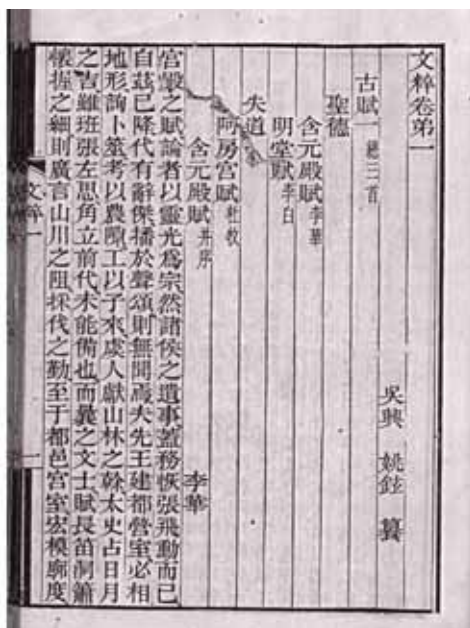 文粹卷第一
吳興 姚鉉 纂
古賦一 總三首
聖德
含元殿賦 李華
明堂賦 李白
失道
阿房宮賦 杜牧
含元殿賦 并序 李華
宮殿之賦論者以靈光爲宗然諸侯之遺事蓋務恢張飛動而已
自茲已降代有辭傑播於聲頌則無聞焉夫先王建都營室必相
地形詢卜筮考以農隙工以子來虞人獻山林之榦太史占日月
之吉雖班張左思角立前代未能備也而曩之文士賦長笛洞簫
懷握之細則廣言山川之阻採伐之勤至于都邑宮室宏模廓度
文粹一
一